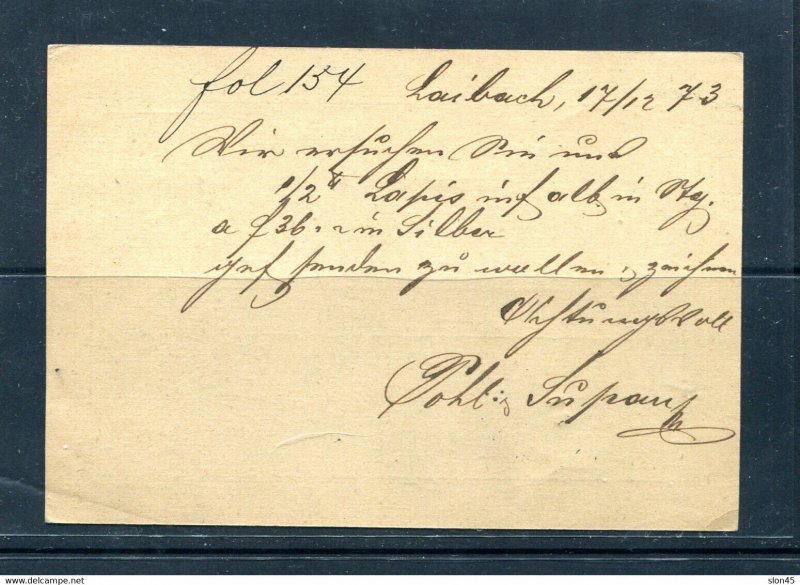 fol 154 Laibach, 17/12 73
Wir ersuchen Sie uns
1/2 ℔ Lapis inf alb. in Stg.
a f 36. in Silber
gef senden zu wollen & zeichnen
Achtungsvoll
Pohl & Supan
delcampe.net
slon45